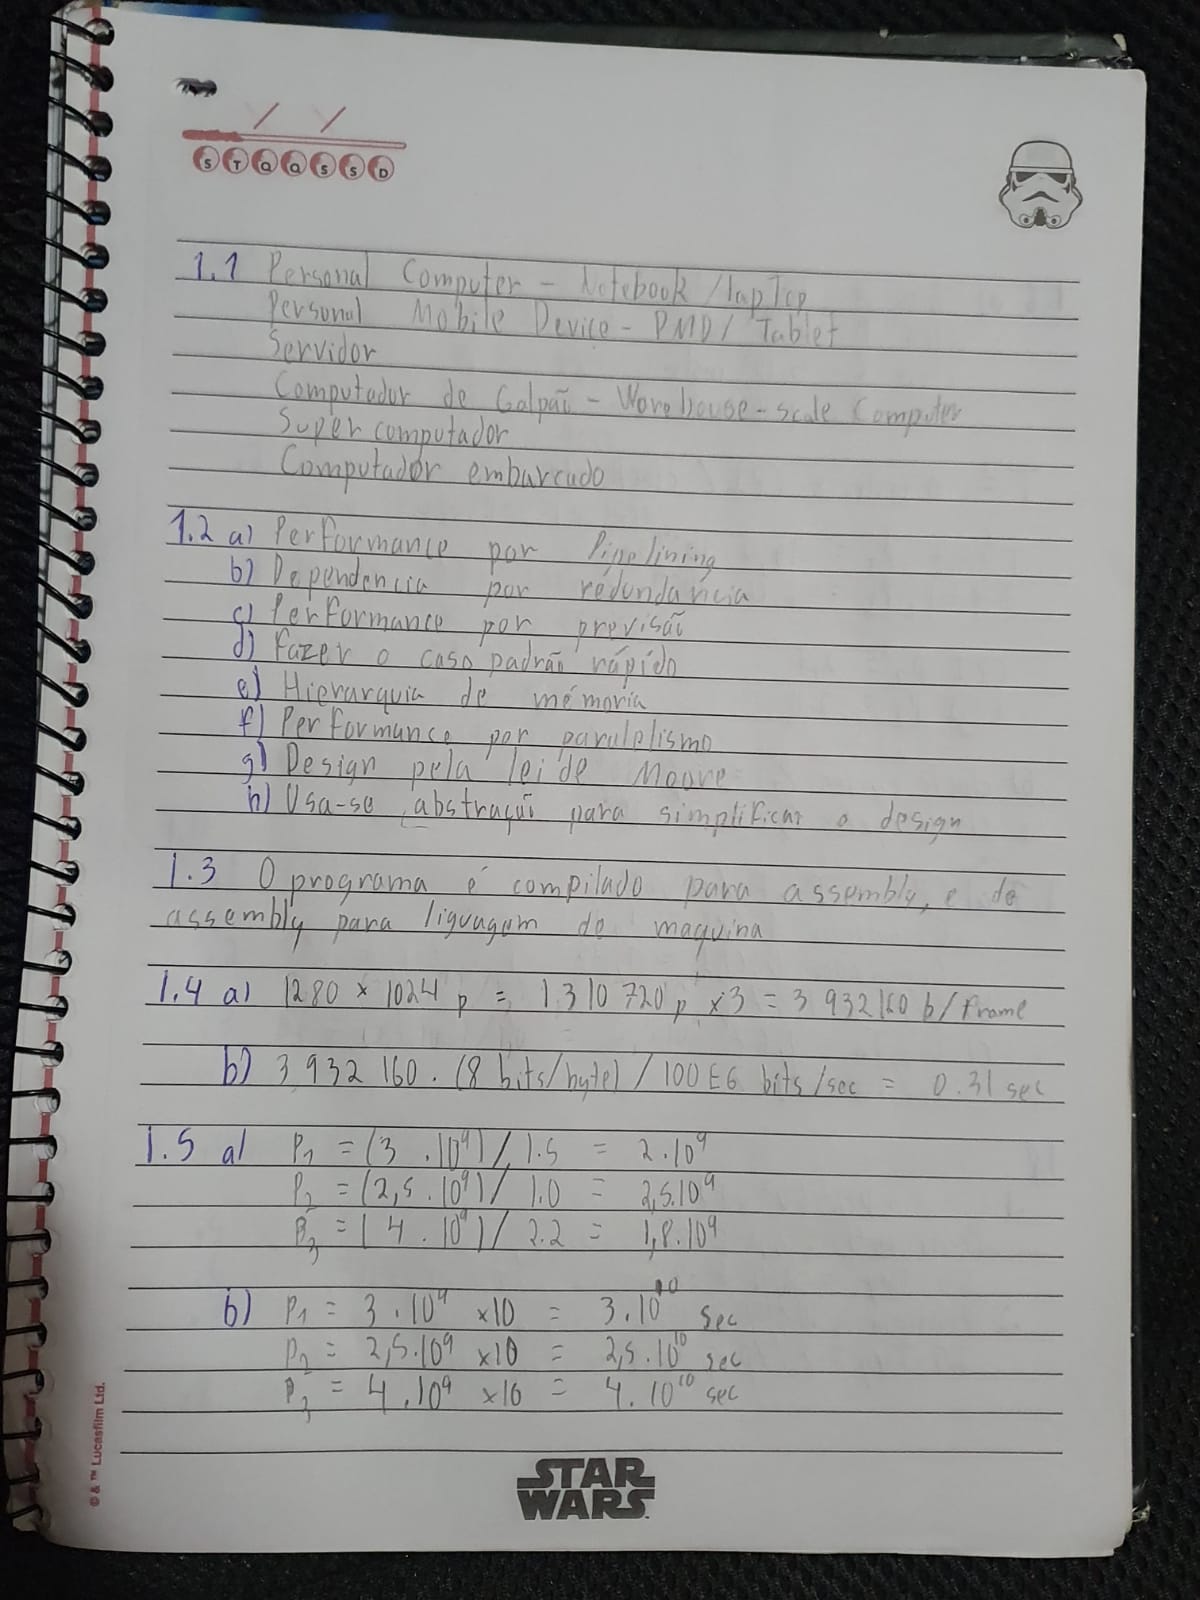 S T Q Q S S D
1.1 Personal Computer - Notebook/laptop
Personal Mobile Device - PMD/ Tablet
Servidor
Computador de Galpão - Warehouse-scale Computer
Super computador
Computador embarcado
1.2 a) Performance por Pipelining
b) Dependencia por redundancia
c) Performance por previsão
d) Fazer o caso padrão rápido
e) Hierarquia de mémoria
f) Performance por paralelismo
g) Design pela lei de Moore
h) Usa-se abstração para simplificar o design
1.3 O programa é compilado para assembly, e de
assembly para liguagem de maquina
1.4 a) 1280 × 1024 p = 1 310 720 p ×3 = 3 932 160 b/frame
b) 3 932 160 . (8 bits/byte) / 100 E6 bits/sec = 0.31 sec
1.5 a) P₁ = (3 . 10⁹) / 1.5 = 2.10⁹
P₂ = (2,5 . 10⁹) / 1.0 = 2,5.10⁹
P₃ = (4 . 10⁹) / 2.2 = 1,8.10⁹
b) P₁ = 3 . 10⁹ ×10 = 3.10¹⁰ sec
P₂ = 2,5.10⁹ ×10 = 2,5.10¹⁰ sec
P₃ = 4 .10⁹ ×10 = 4.10¹⁰ sec
© & ™ Lucasfilm Ltd.
STAR
WARS